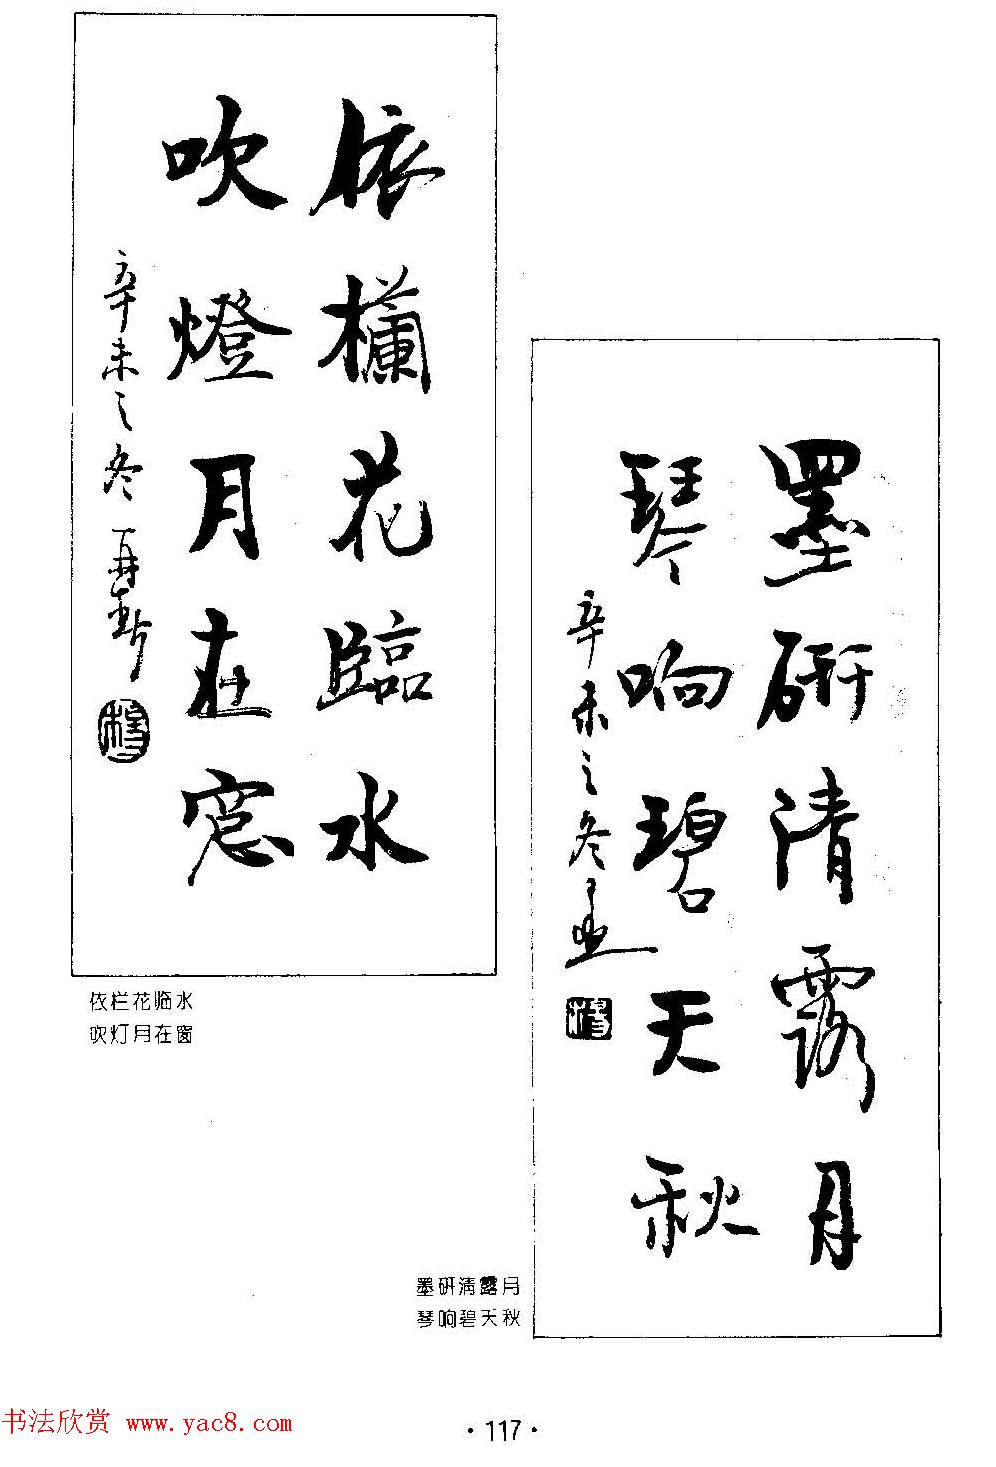 依欄花臨水
吹燈月在窓
辛未之冬
依栏花临水
吹灯月在窗
墨研清露月
琴响碧天秋
辛未之冬
墨研清露月
琴响碧天秋
书法欣赏 www.yac8.com
·117·